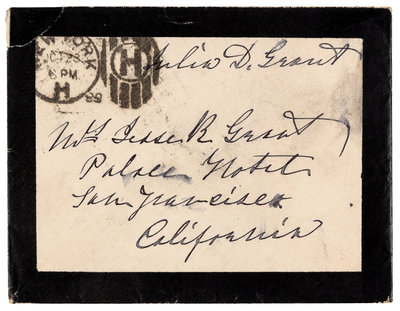 NEW YORK
OCT 23
6 PM
H
99
H
Julia D. Grant
Mrs Jesse R Grant
Palace Hotel
San Francisco
California